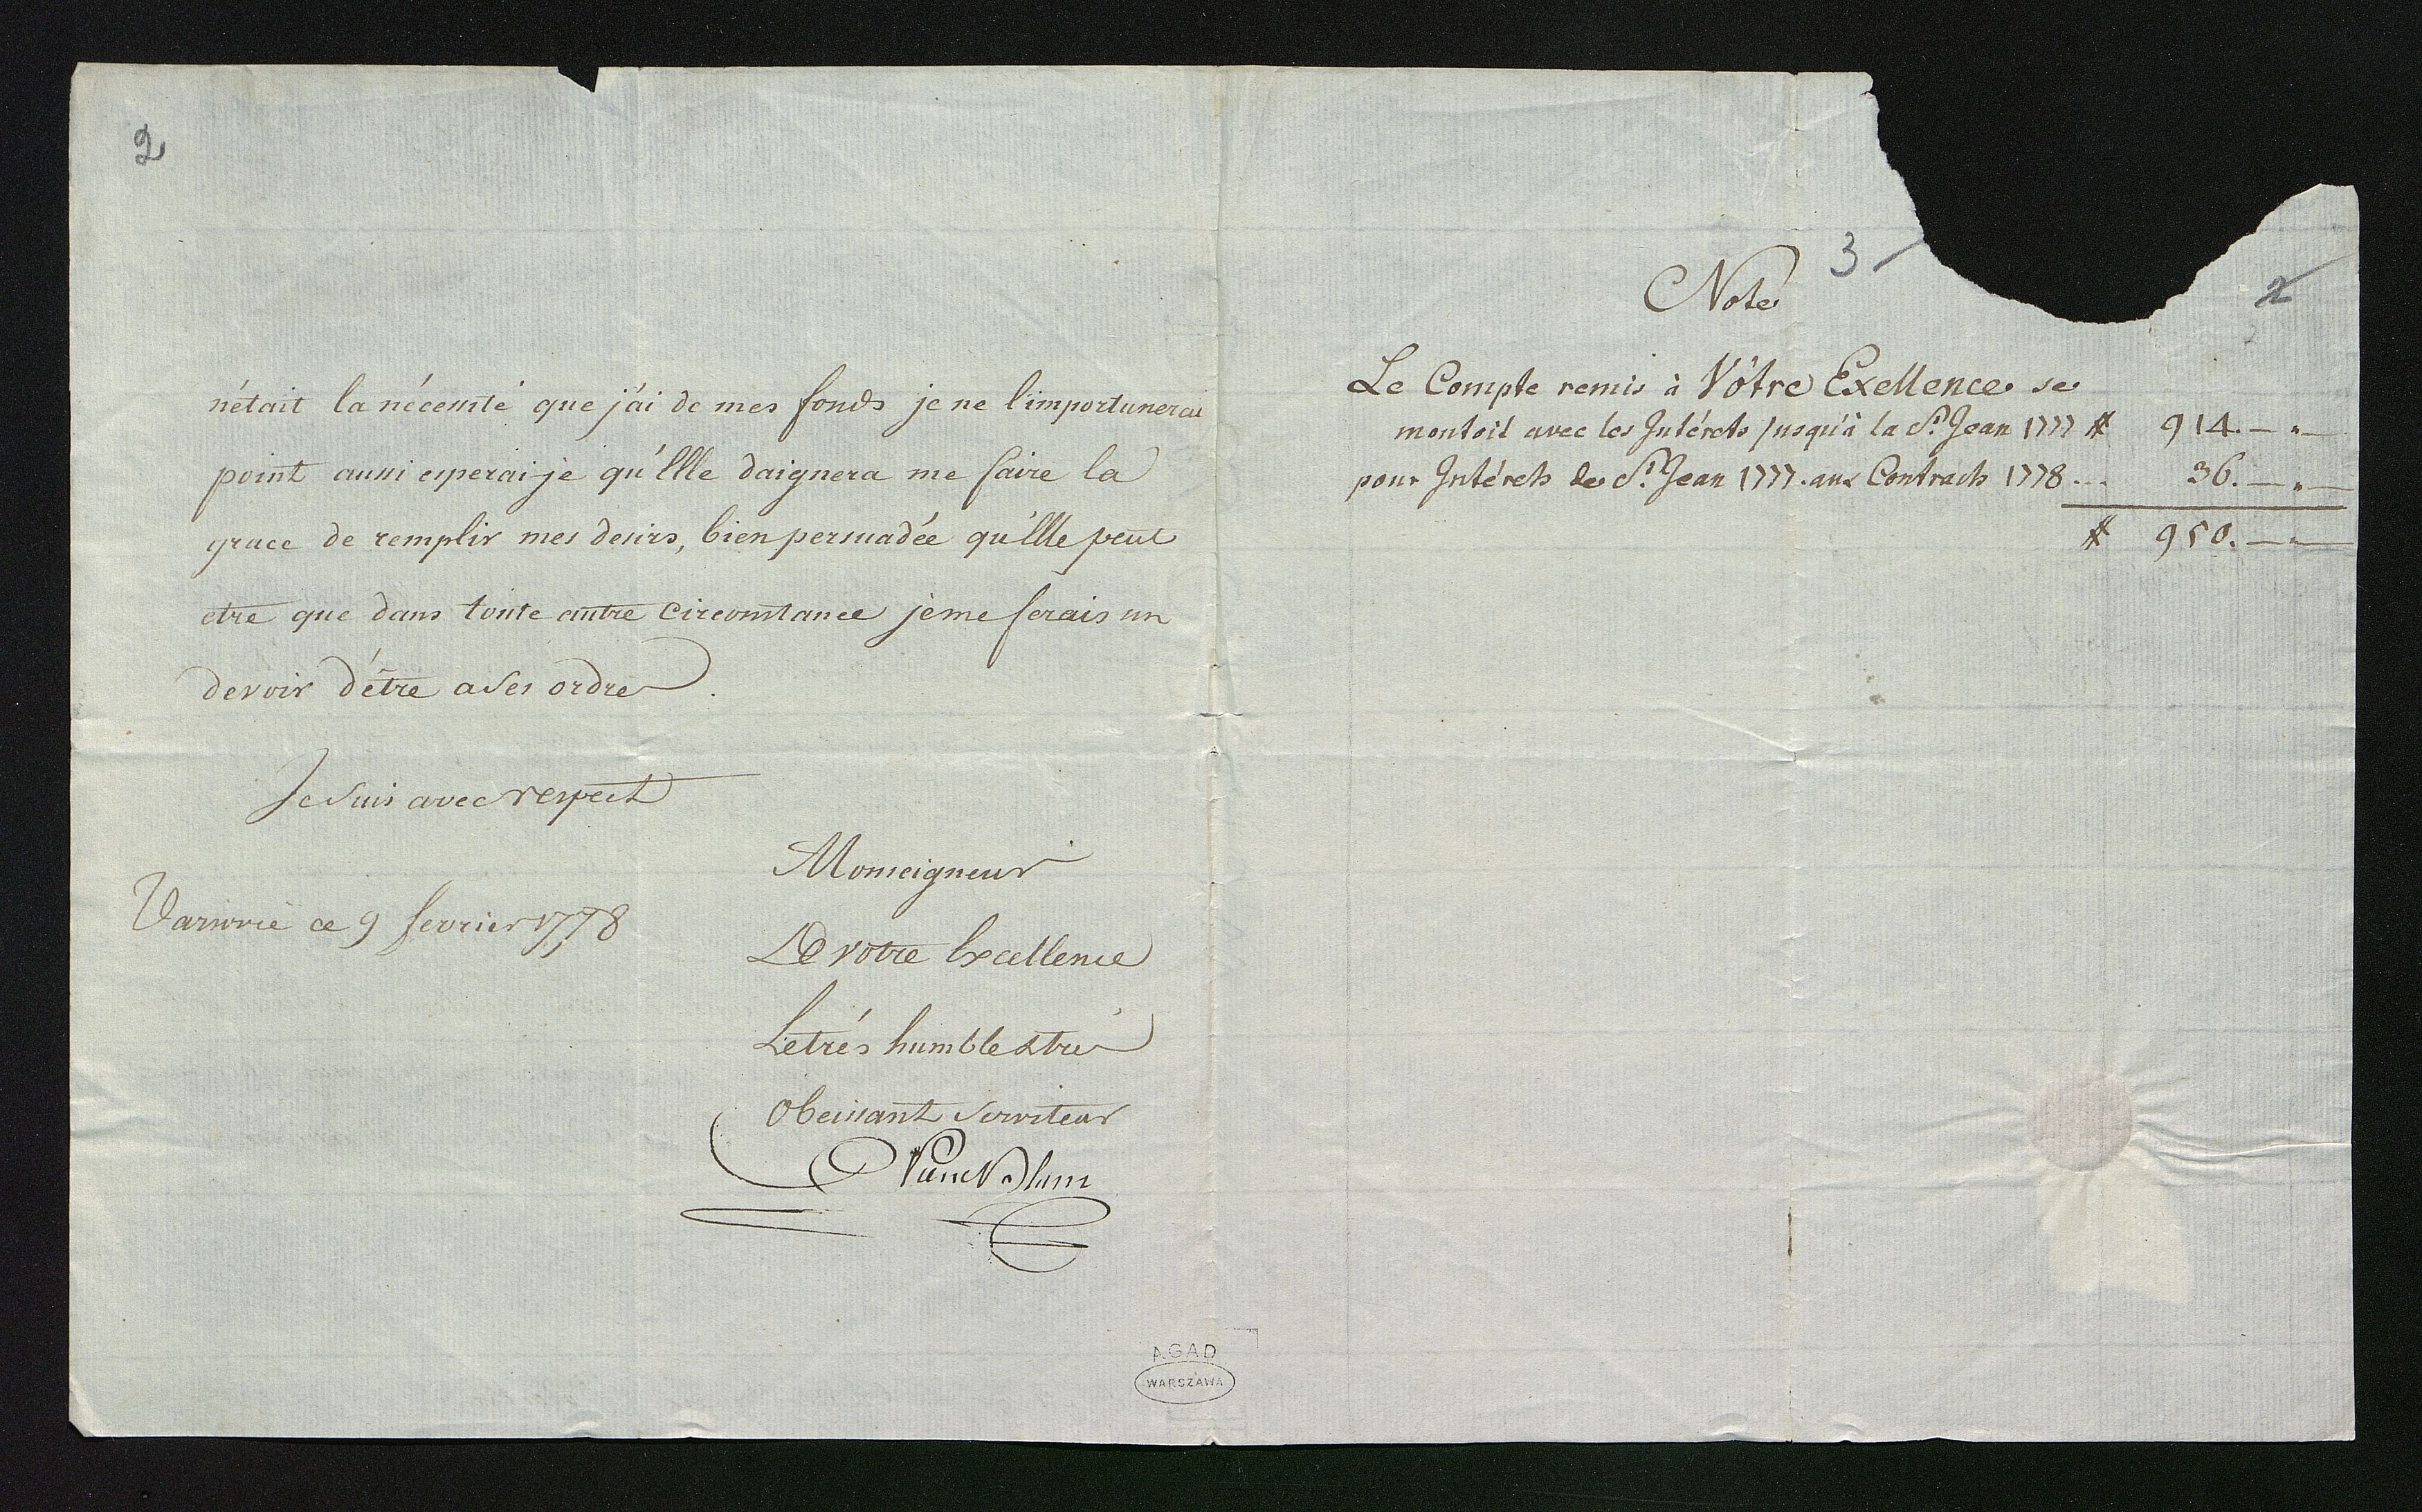 2
n'était la nécessité que j'ai de mes fonds je ne l'importunerai
point aussi esperai-je qu'Elle daignera me faire la
grace de remplir mes desirs, bien persuadée qu'Elle peut
etre que dans toute autre circonstance je me ferais un
devoir d'être a Ses ordre.
Je Suis avec respect
Monseigneur
Varsovie ce 9 fevrier 1778
De votre Excellence
Le trés humble & tres
Obeissant Serviteur
AGAD
WARSZAWA
3
2
Note
Le Compte remis à Vôtre Exellence se
montoit avec les Intérets jusqu'à la St. Jean 1777 # 914. — " —
pour Intérets de St. Jean 1777. aux Contracts 1778 ... 36. — " —
# 950. — " —